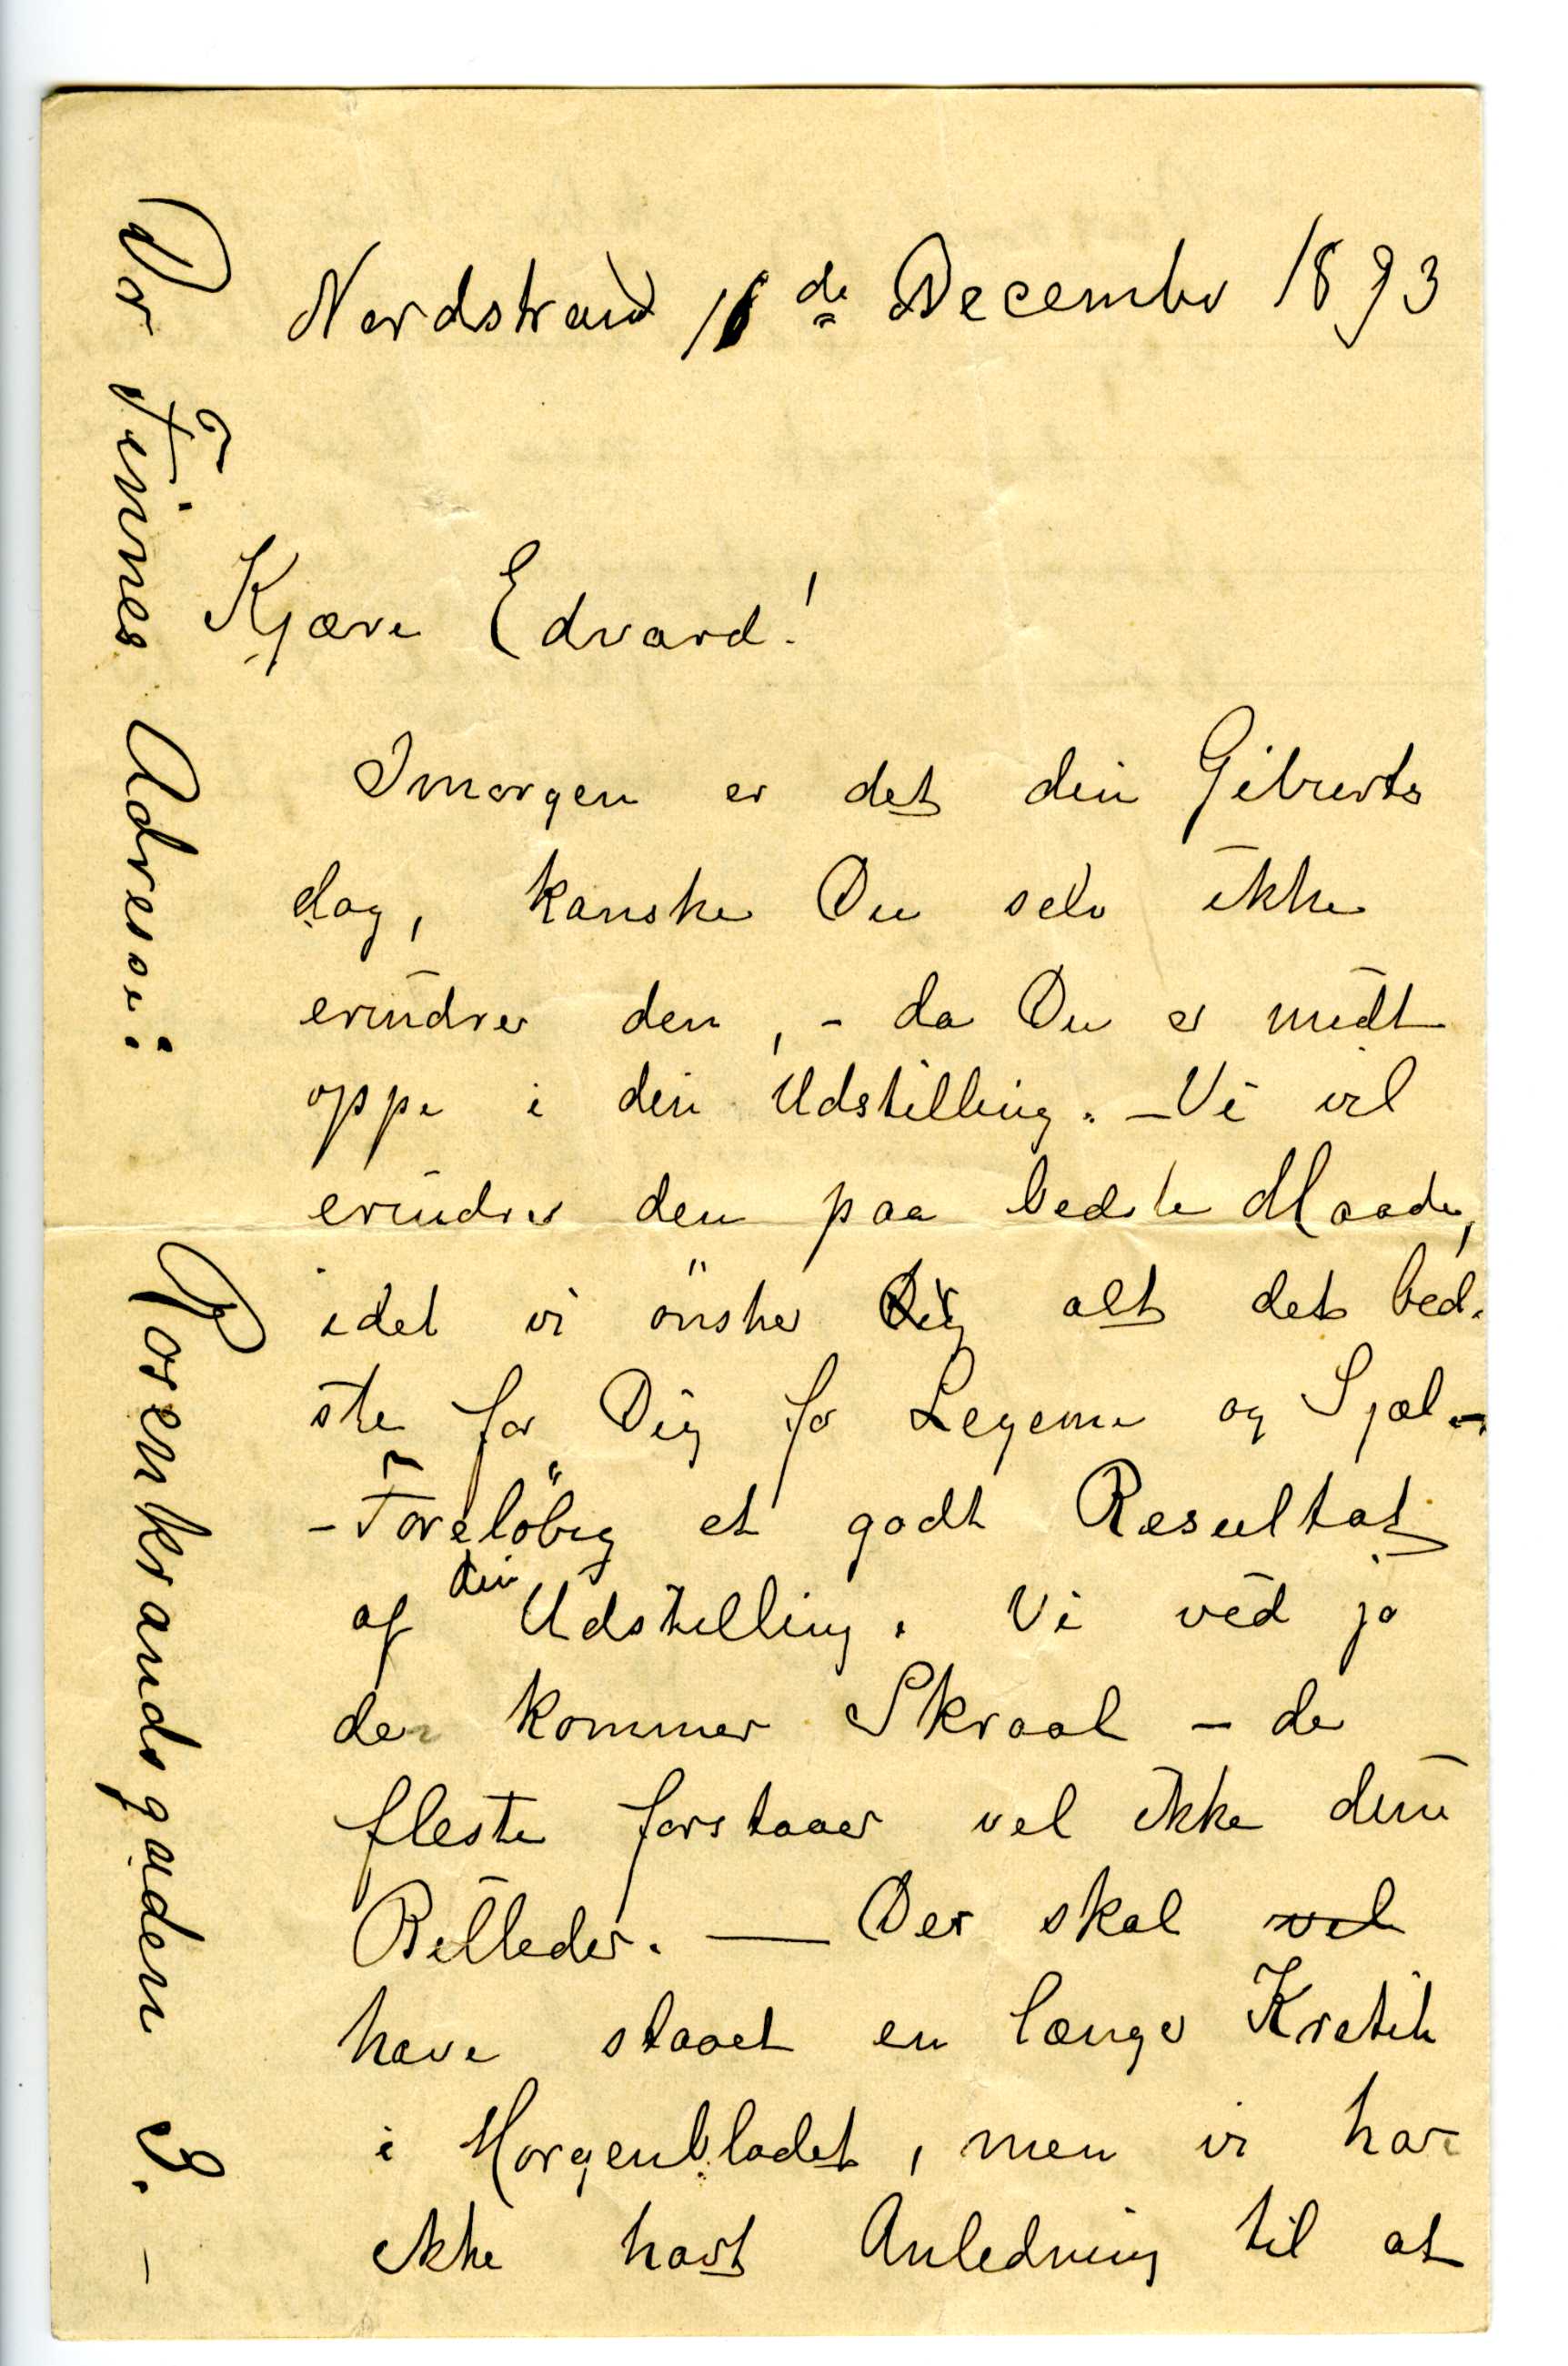 Nordstrand 11 de December 1893
Kjære Edvard!
Imorgen er det din Geburts
dag, kanske Du selv ikke
erindrer den, - da Du er midt
oppe i din Udstilling. - Vi vil
erindre den paa bedste Maade,
idet vi önsker Dig alt det bed-
ste for Dig for Legeme og Sjæl -
- Foreløbig et godt Resultat
af din Udstilling. Vi véd jo
der kommer Skraal - de
fleste forstaaer vel ikke dine
Billeder. — Der skal vel
have staaet en længer Kritik
i Morgenbladet, men vi har
ikke havt Anledning til at
Dr Finnes Adresse:
Rosenkrandsgaden 3. -